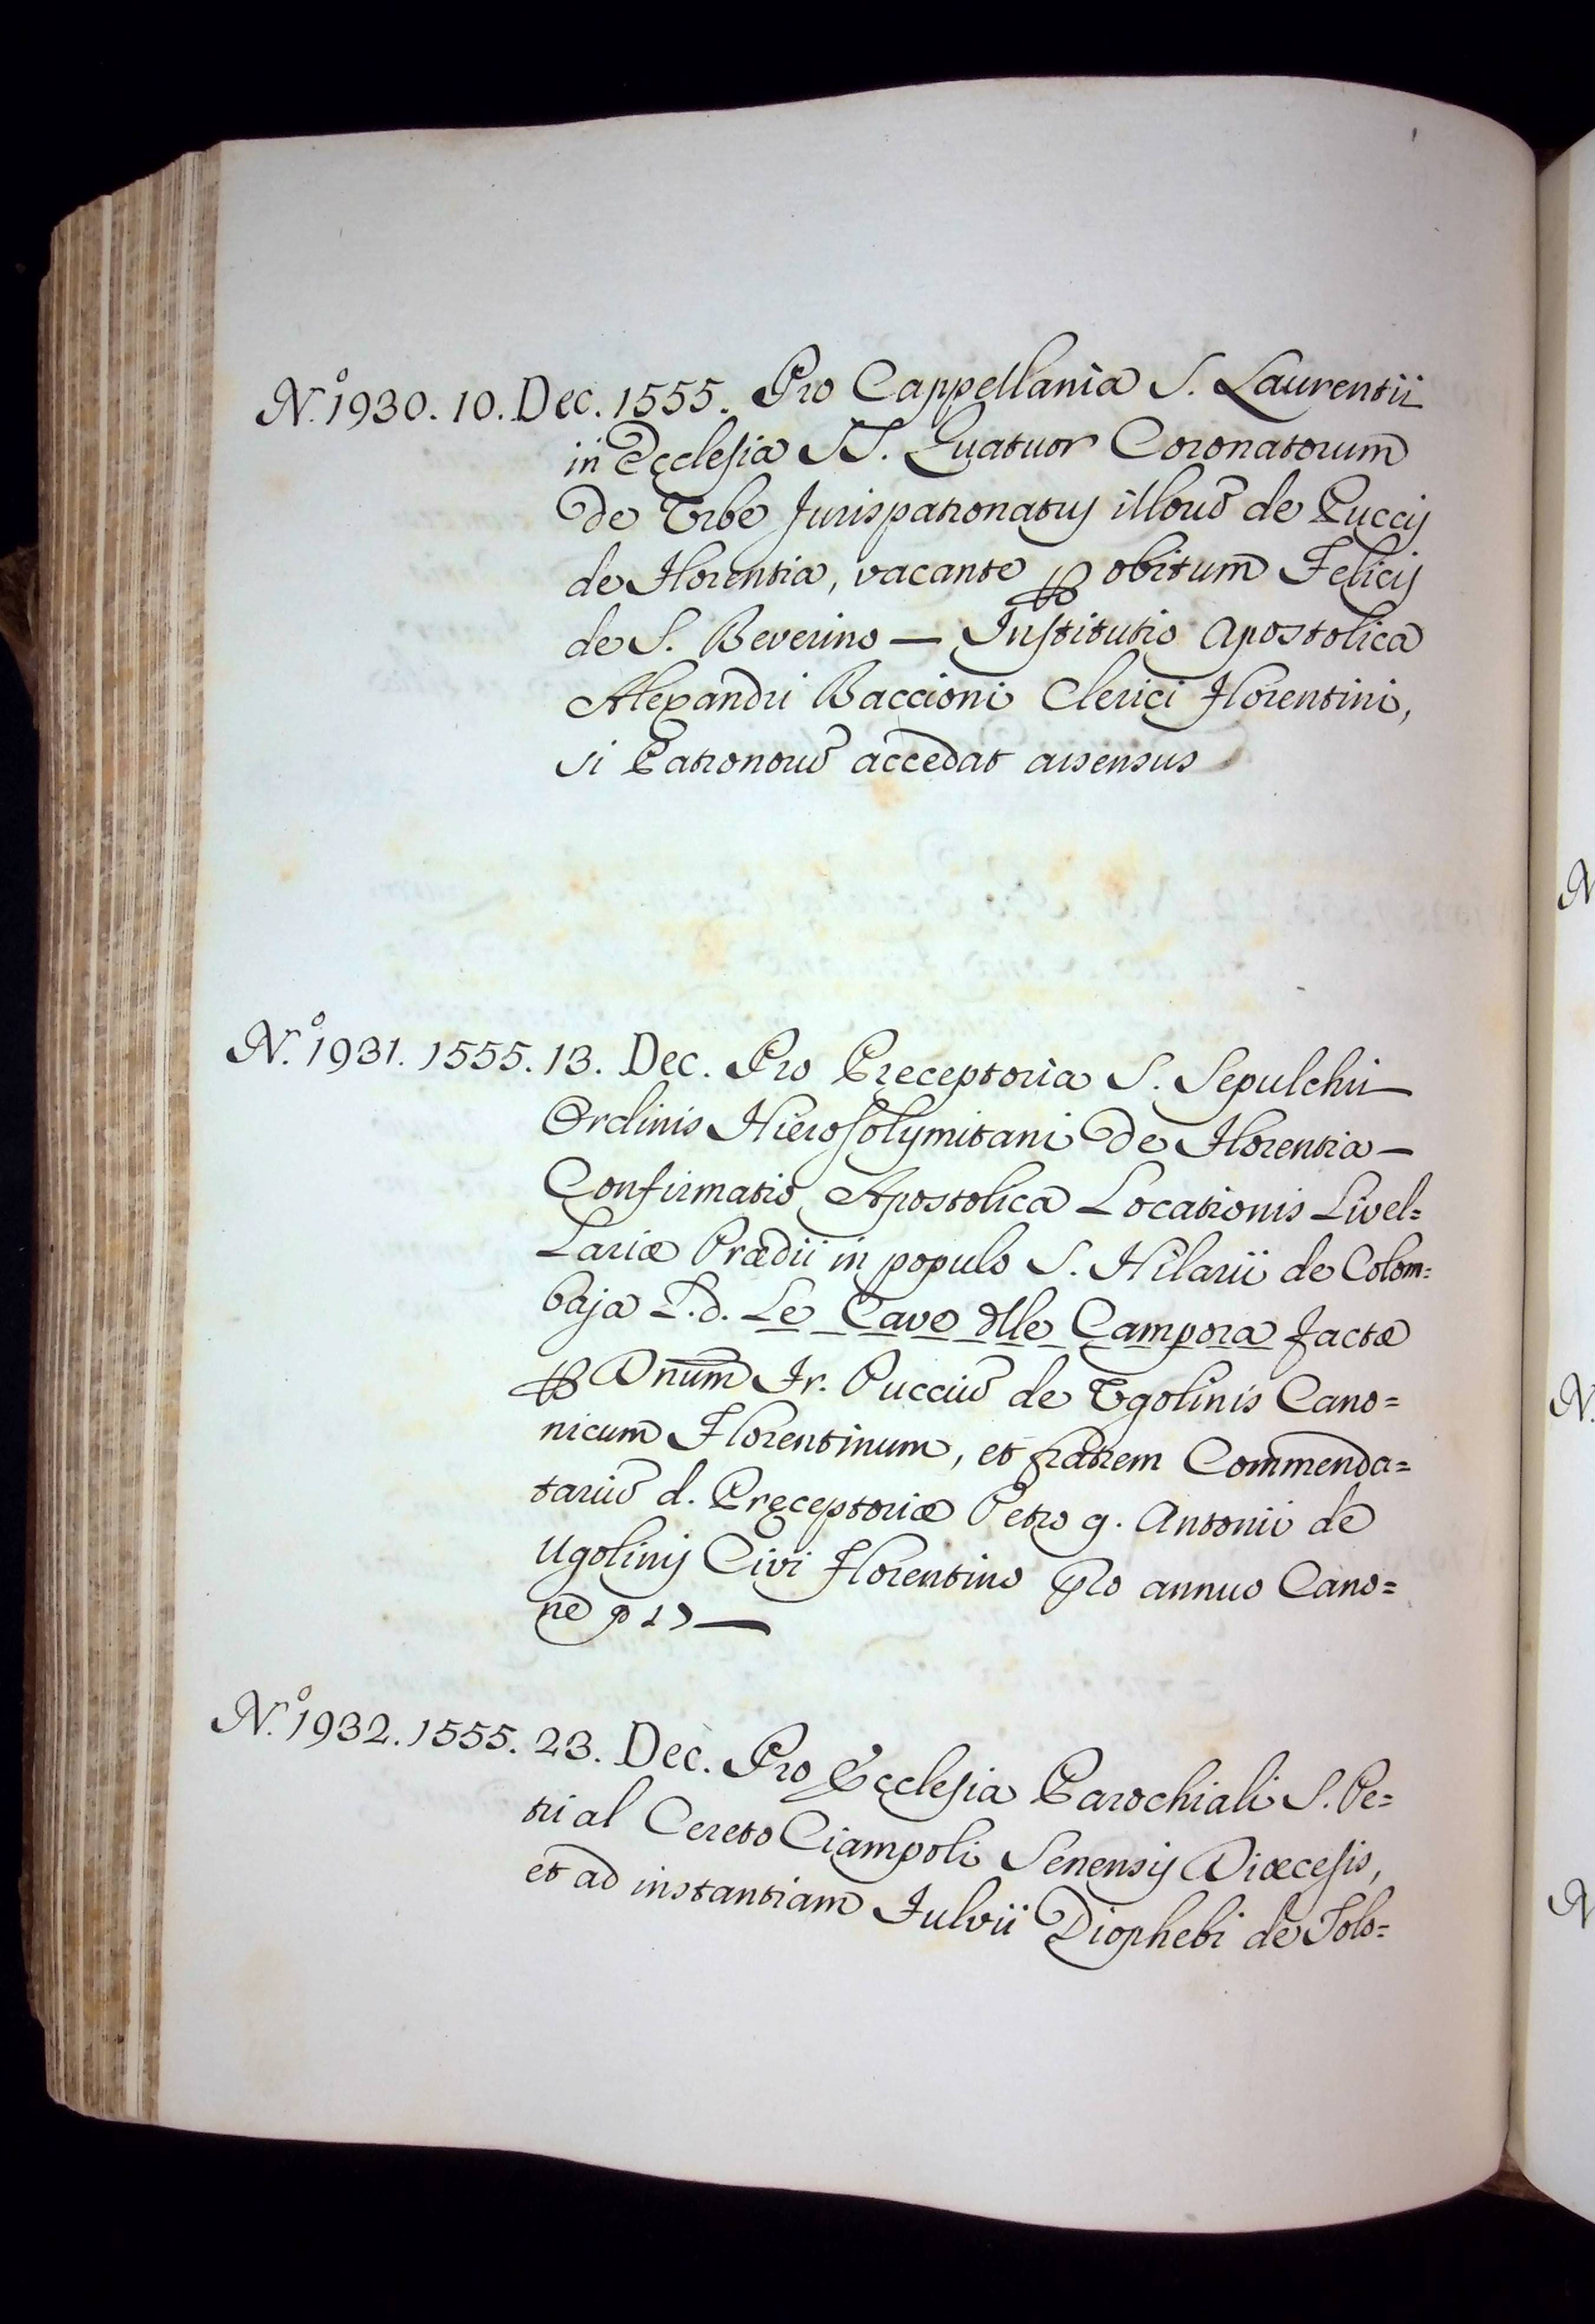 N.º 1930. 10. Dec. 1555. Pro Cappellania S. Laurentii
in Ecclesia SS. Quatuor Coronatorum
de Urbe Jurispatronatus illorũ de Puccijs
de Florentia, vacante ꝑ obitum Felicis
de S. Beverino — Institutio Apostolica
Alexandri Baccioni Clerici Florentini,
si Patronorũ accedat assensus
N.º 1931. 1555. 13. Dec. Pro Preceptoria S. Sepulchri
Ordinis Hierosolymitani de Florentia —
Confirmatio Apostolica Locationis Livel=
Lariæ Prædii in populo S. Hilarii de Colom=
baja L.d. Le Cave dlle Campora factæ
ꝑ Dnum Fr. Pucciũ de Ugolinis Cano=
nicum Florentinum, et fratrem Commenda=
tariũ d. Preceptoriæ Petro q. Antonii de
Ugolinis Civi Florentino pro annuo Cano=
ne
N.º 1932. 1555. 23. Dec. Pro Ecclesia Parochiali S. Pe=
tri al Cereto Ciampoli Senensis Diœcesis,
et ad instantiam Fulvii Diophebi de Tolo=
N
N.
N